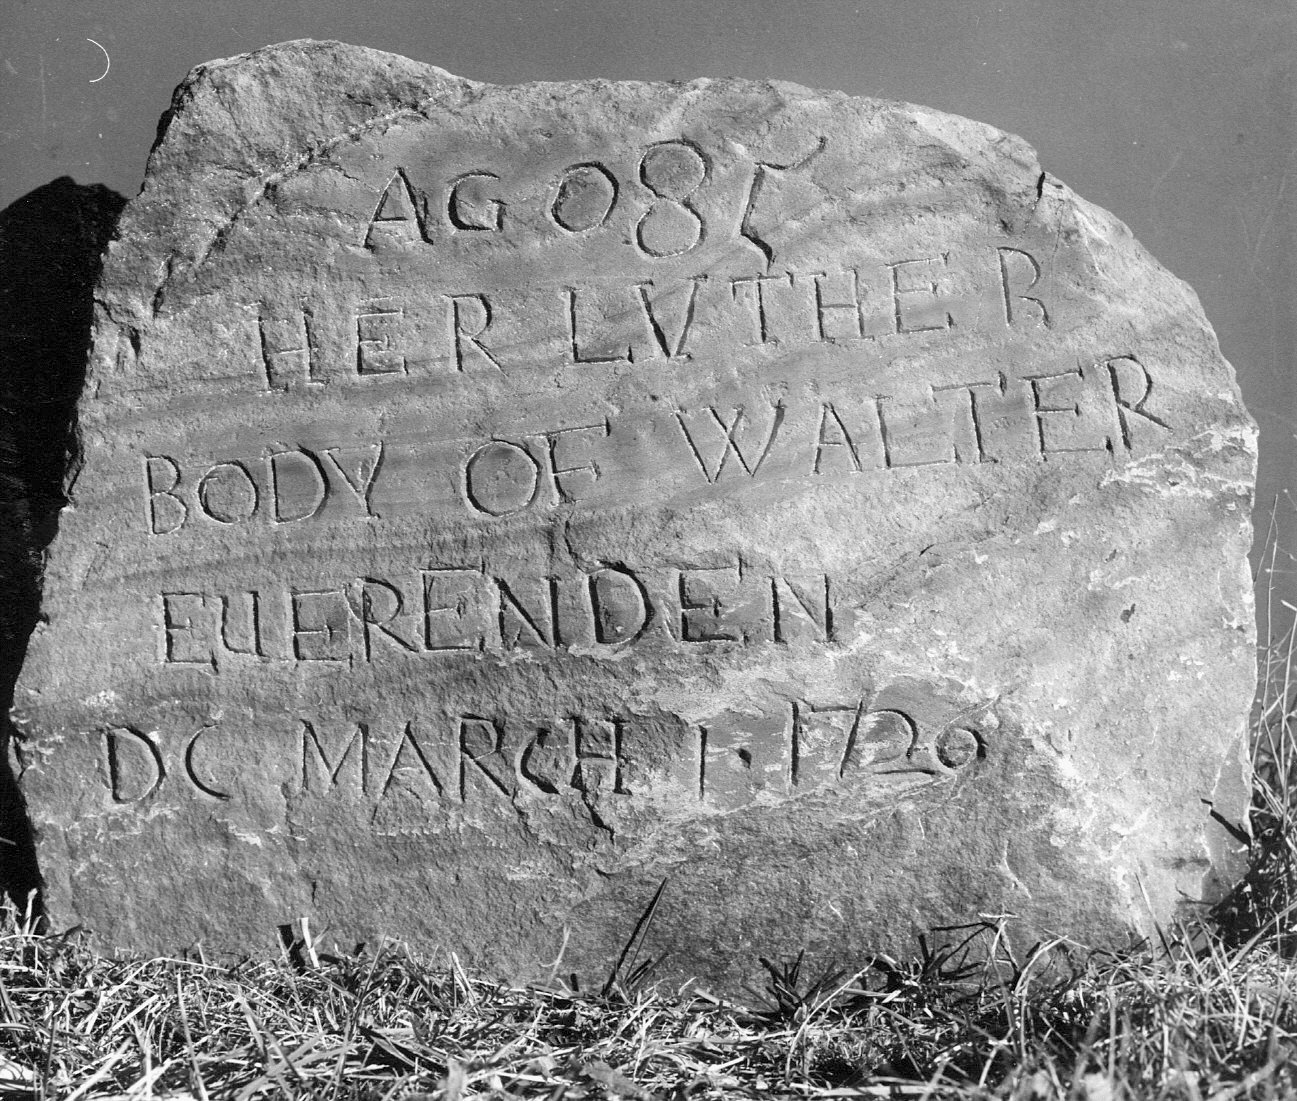 AG 085
HER LVTHE R
BODY OF WALTER
EUERENDEN
DC MARCH 1·1720